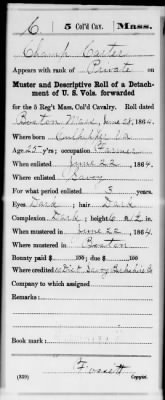 C | 5 Col'd Cav. | Mass.
Champ Carter
Appears with rank of Private on
Muster and Descriptive Roll of a Detach-
ment of U. S. Vols. forwarded
for the 5 Reg't Mass. Col'd Cavalry. Roll dated
Boston Mass June 28, 1864.
Where born Va.
Age 25 y'rs; occupation Farmer
When enlisted June 22, 1864.
Where enlisted Savoy
For what period enlisted 3 years.
Eyes Dark; hair Dark
Complexion Dark; height 6 ft. 2 in.
When mustered in June 22, 1864.
Where mustered in Boston
Bounty paid $ 100; due $ 100
Where credited Savoy Berkshire Co
Company to which assigned
Remarks:
Book mark:
Fossett
(339) Copyist.